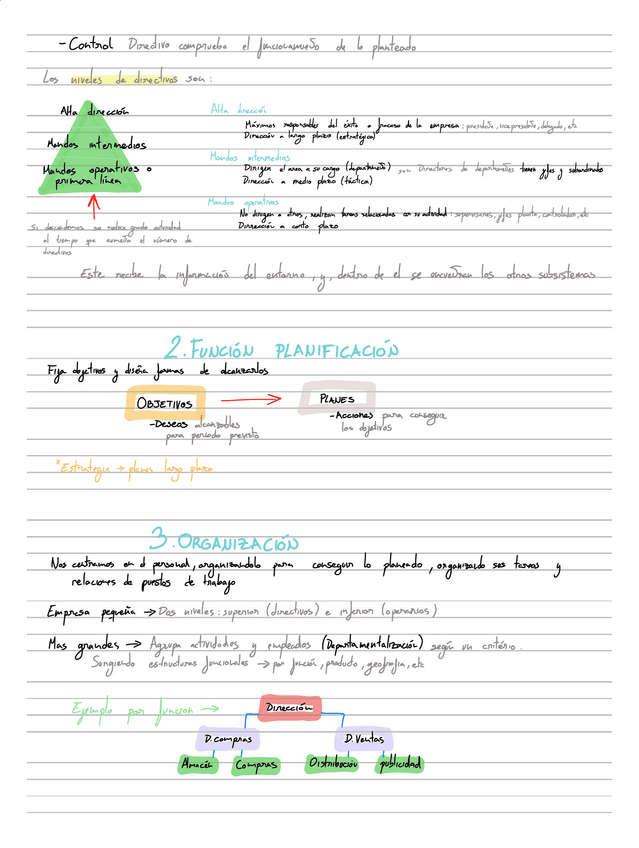 - Control Directivo comprueba el funcionamiento de lo planteado
Los niveles de directivos son:
Alta dirección
Mandos intermedios
Mandos operativos o
primera línea
Si descendemos se reduce grado autoridad
al tiempo que aumenta el número de
directivos
Alta dirección
Máximos responsables del éxito o fracaso de la empresa: presidente, vicepresidente, delegado, etc
Dirección a largo plazo (estratégica)
Mandos intermedios
Dirigen el area a su cargo (departamento) son Directores de departamentos tienen jefes y subordinados
Dirección a medio plazo (táctica)
Mandos operativos
No dirigen a otros, realizan tareas relacionadas con su actividad: supervisores, jefes planta, controlador, etc
Dirección a corto plazo
Este recibe la información del entorno, y, dentro de el se encuentran los otros subsistemas
2. FUNCIÓN PLANIFICACIÓN
Fija objetivos y diseña formas de alcanzarlos
OBJETIVOS
PLANES
- Deseos alcanzables
para periodo previsto
- Acciones para conseguir
los objetivos
*Estrategia → planes largo plazo
3. ORGANIZACIÓN
Nos centramos en el personal, organizandolo para conseguir lo planeado, organizando sus tareas y
relaciones de puestos de trabajo
Empresa pequeña → Dos niveles: superior (directivos) e inferior (operarios)
Mas grandes → Agrupa actividades y empleados (Departamentalización) según un critério.
Surgiendo estructuras funcionales → por función, producto, geografia, etc
Ejemplo por funcion →
Dirección
D. compras
D. Ventas
Almacén
Compras
Distribución
publicidad